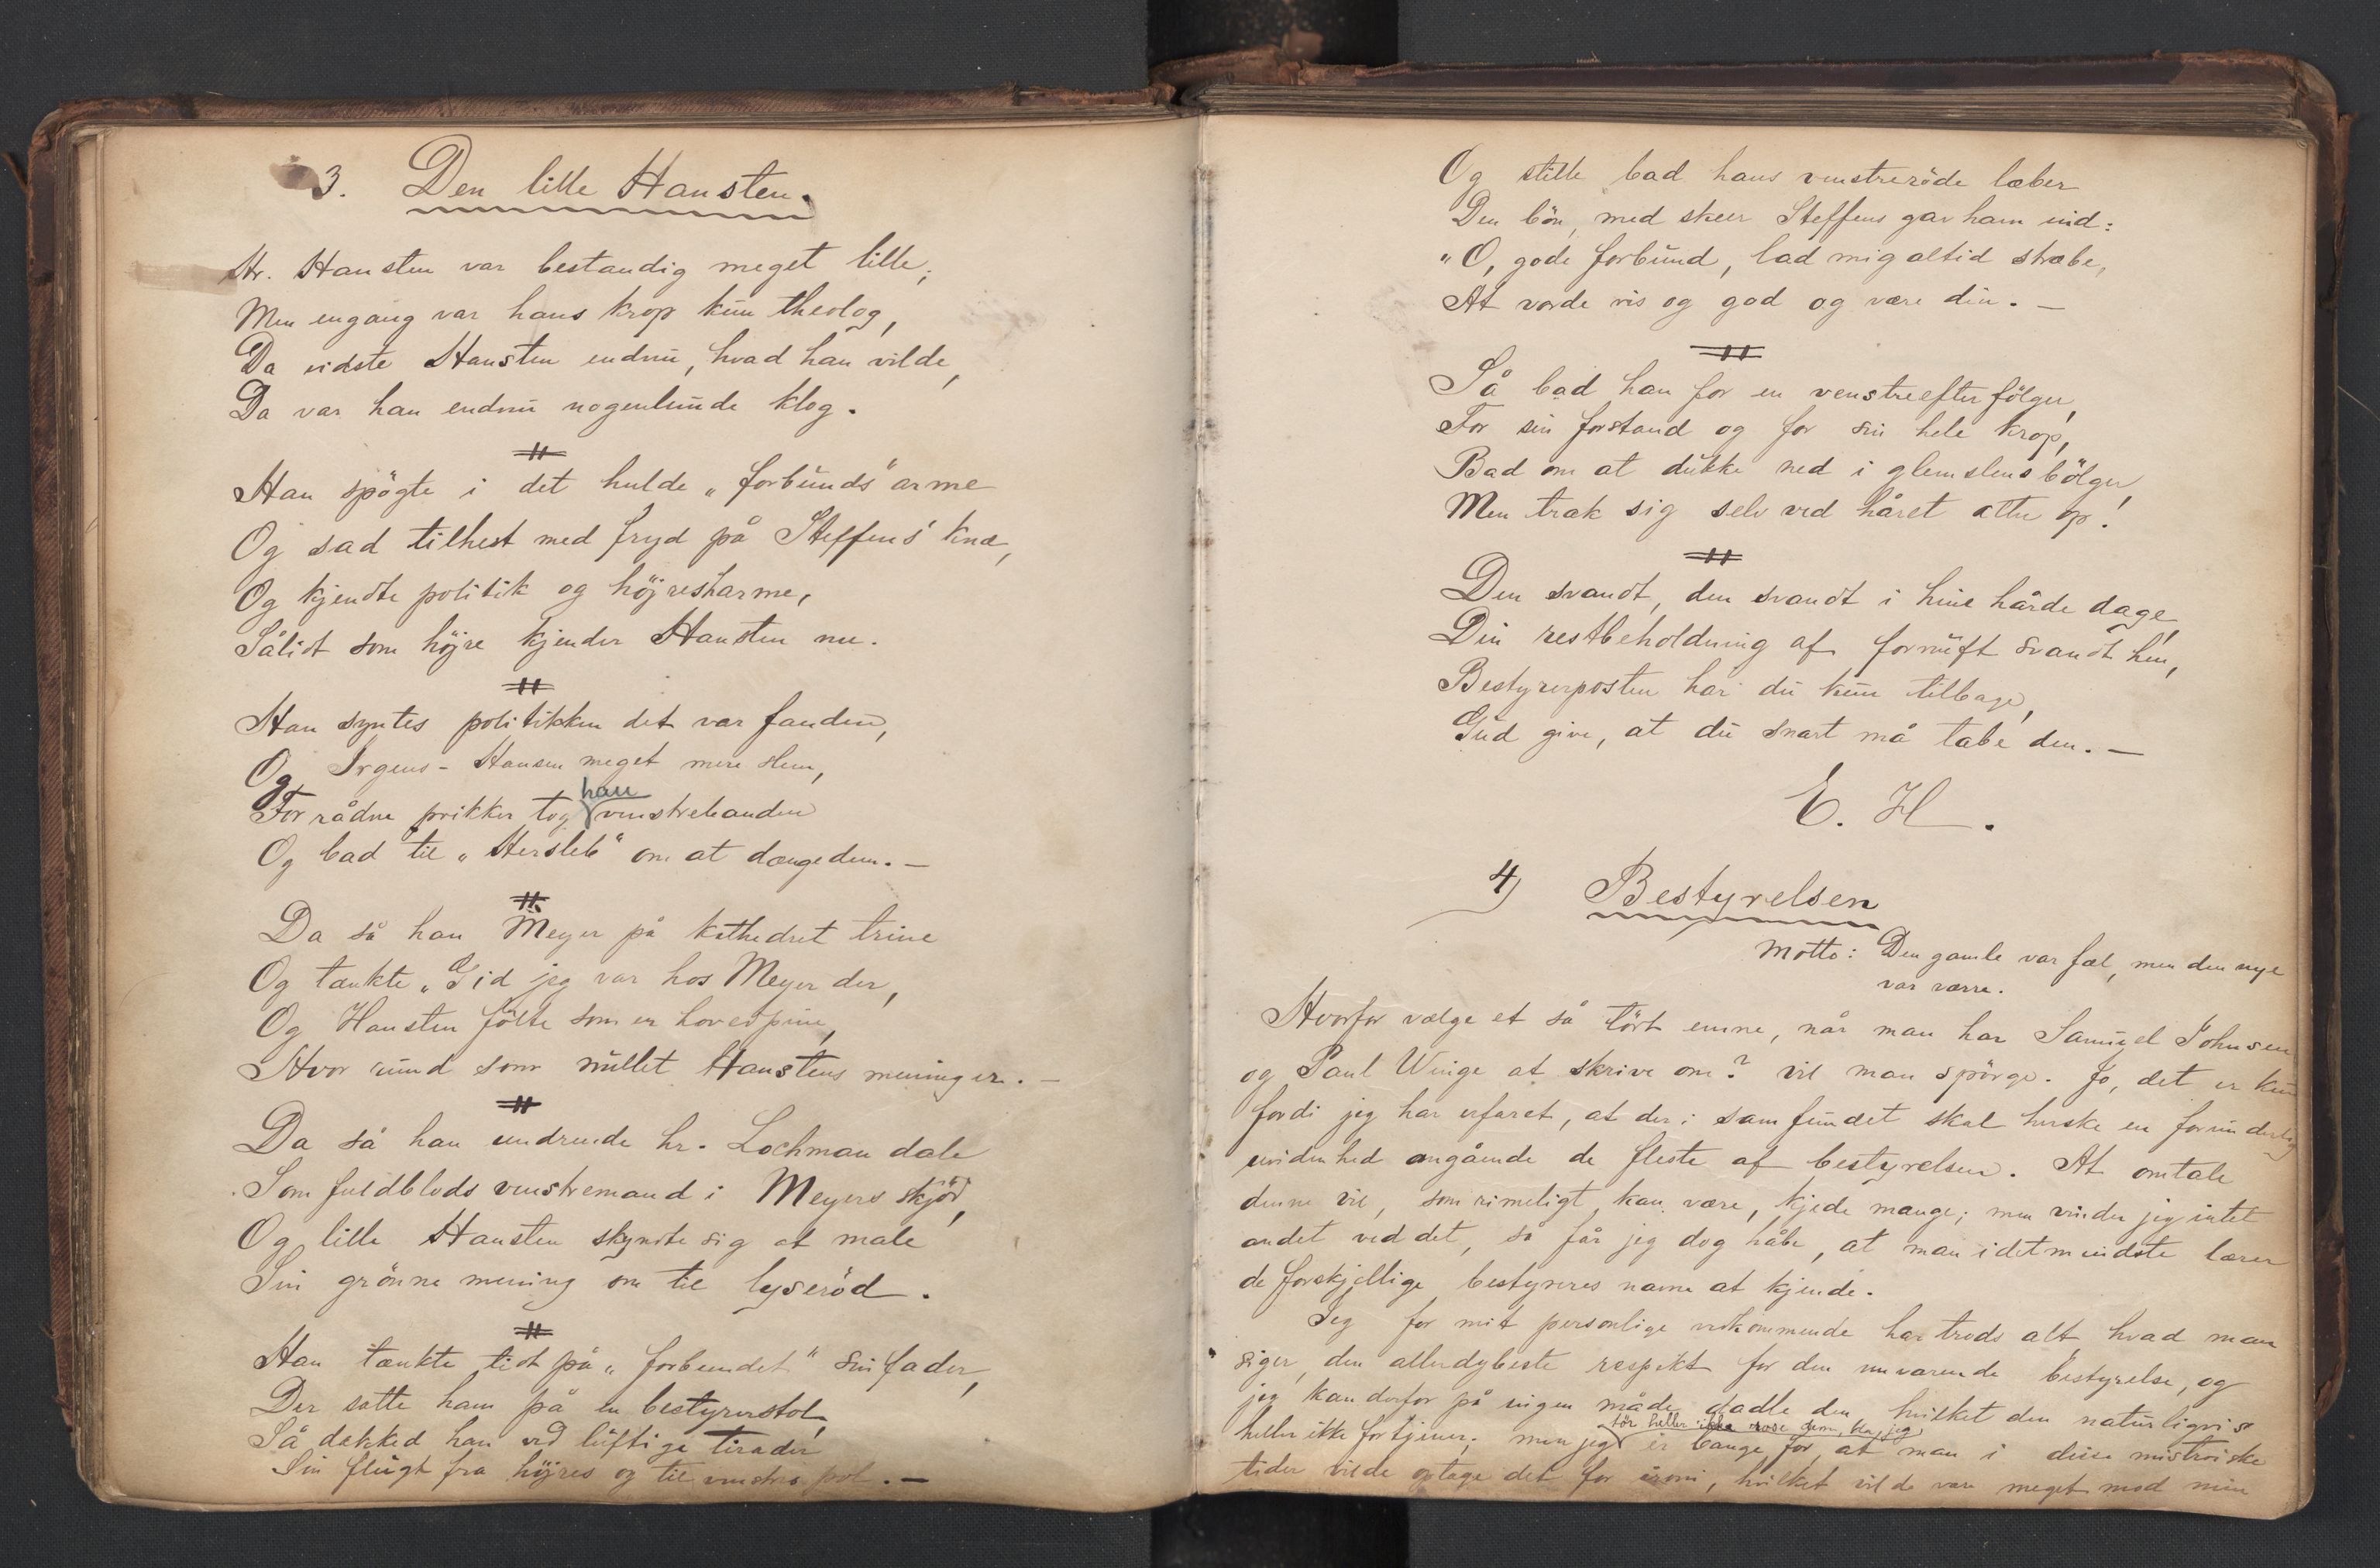 3. Den lille Hansten.
Hr. Hansten var bestandig meget lille;
Men engang var hans krop kun theolog,
Da vidste Hansten endnu, hvad han vilde,
Da var han endnu nogenlunde klog.
Han spögte i det hulde „forbunds" arme
Og sad tilhest med fryd på Steffens' knæ,
Og kjendte politik og höjresharme,
Sålidt som höjre kjender Hansten nu.
Han syntes politikken det var fanden,
Og Irgens-Hansen meget mere slem,
For rådne prikker tog han venstrebanden
Og bad til „Hersleb" om at dænge dem. —
Da så han Meyer på kathedret trine
Og tænkte „Gid jeg var hos Meyer der,
Og Hansten fölte som en hovedpine,
Hvor rund som nullet Hanstens meninger. —
Da så han undrende hr. Lochman dale
Som fuldblods venstremand i Meyers skjöd,
Og lille Hansten skyndte sig at male
Sin grönne mening om til lyseröd.
Han tænkte tidt på „forbundet" sin fader,
Der satte ham på en bestyrerstol,
Så dækked han ved luftige tirader
Sin flugt fra höjres og til venstres pol. —
Og stille bad hans venstreröde læber
Den bön, med skeer Steffens gav ham ind:
„O, gode forbund, lad mig altid stræbe,
At vorde vis og god og være din. —
Så bad han for en venstreefterfölger,
For sin forstand og for sin hele krop,
Bad om at dukke ned i glemslens bölger,
Men trak sig selv ved håret atter op!
Den svandt, den svandt i hine hårde dage,
Din restbeholdning af fornuft svandt hen,
Bestyrerposten har du kun tilbage,
Gud give, at du snart må tabe den. —
E. H.
4) Bestyrelsen
Motto: Den gamle var fæl, men den nye
var værre.
Hvorfor vælge et så tört emne, når man har Samuel Johnsen
og Paul Winge at skrive om? vil man spörge. Jo, det er kun
fordi jeg har erfaret, at der i samfundet skal herske en forunderlig
uvidenhed angående de fleste af bestyrelsen. At omtale
denne vil, som rimeligt kan være, kjede mange; men vinder jeg intet
andet ved det, så får jeg dog håbe, at man i det mindste lærer
de forskjellige bestyreres navne at kjende.
Jeg for mit personlige vedkommende har trods alt, hvad man
siger, den allerdybeste respekt for den nuværende bestyrelse, og
jeg kan derfor på ingen måde dadle den, hvilket den naturligvis
tör heller ikke rose dem, ten jeg
heller ikke fortjener; men jeg er bange for, at man i disse mistroiske
tider vilde optage det for ironi, hvilket vilde være meget mod min